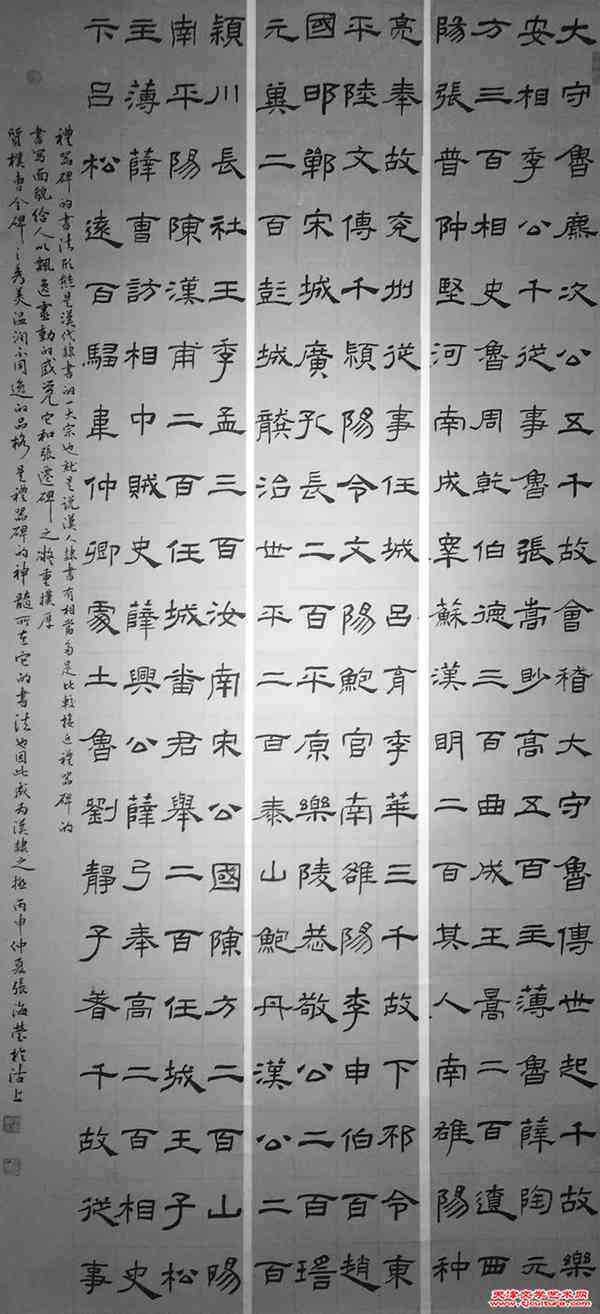 大守魯麃次公五千故會稽大守魯傳世起千故樂
安相季公千從事魯張嵩眇高五百主薄魯薛陶元
方三百相史魯周乾伯德三百曲成王暠二百遼西
陽張普仲堅河南成睪蘇漢明二百其人南雒陽种
亮奉故兗州從事任城呂育季華三千故下邳令東
平陸文傳千穎陽令文陽鮑宮南雒陽李申伯百趙
國邯鄲宋城廣孔長二百平原樂陵恭敬公二百
元冀二百彭城龔治世平二百泰山鮑丹漢公二百
穎川長社王季孟三百汝南宋公國陳方二百山陽
南平陽陳漢甫二百任城番君舉二百任城王子松
主薄薛曹訪相中賊史薛興公薛弓奉高二百相史
卞呂松遠百騶韋仲卿處土魯劉靜子著千故從事
禮器碑的書法形態是漢代隸書的一大宗也就是說漢人隸書有相當多是比較接近禮器碑的
書寫面貌給人以飄逸靈動的感覺它和張遷碑之凝重樸厚
質樸曹全碑之秀美溫潤不同逸的品格是禮器碑的神髓所在它的書法也因此成為漢隸之極丙申仲夏張海瑩於沽上
天津文学艺术网
www.jcultura.com